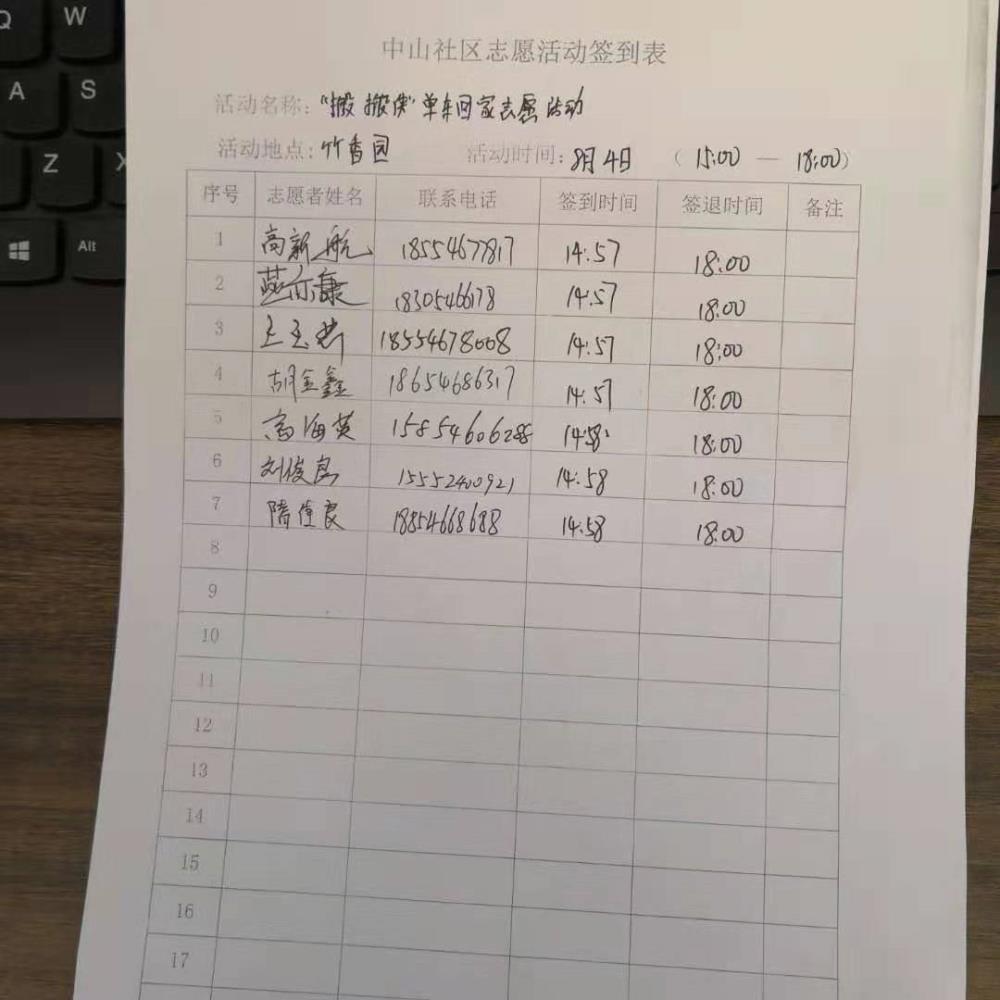 Q W
A S
Z X
Alt
中山社区志愿活动签到表
活动名称: "搬搬侠"单车回家志愿活动
活动地点: 竹香园 活动时间: 8月4日 (15:00 — 18:00)
序号 志愿者姓名 联系电话 签到时间 签退时间 备注
1 高新航 18554677817 14:57 18:00
2 燕亦康 1830546178 14:57 18:00
3 王玉 18554678008 14:57 18:00
4 胡金鑫 18654686317 14:57 18:00
5 高海英 15854606288 14:58 18:00
6 刘俊良 15552400921 14:58 18:00
7 隋佳良 18854668688 14:58 18:00
8
9
10
11
12
13
14
15
16
17